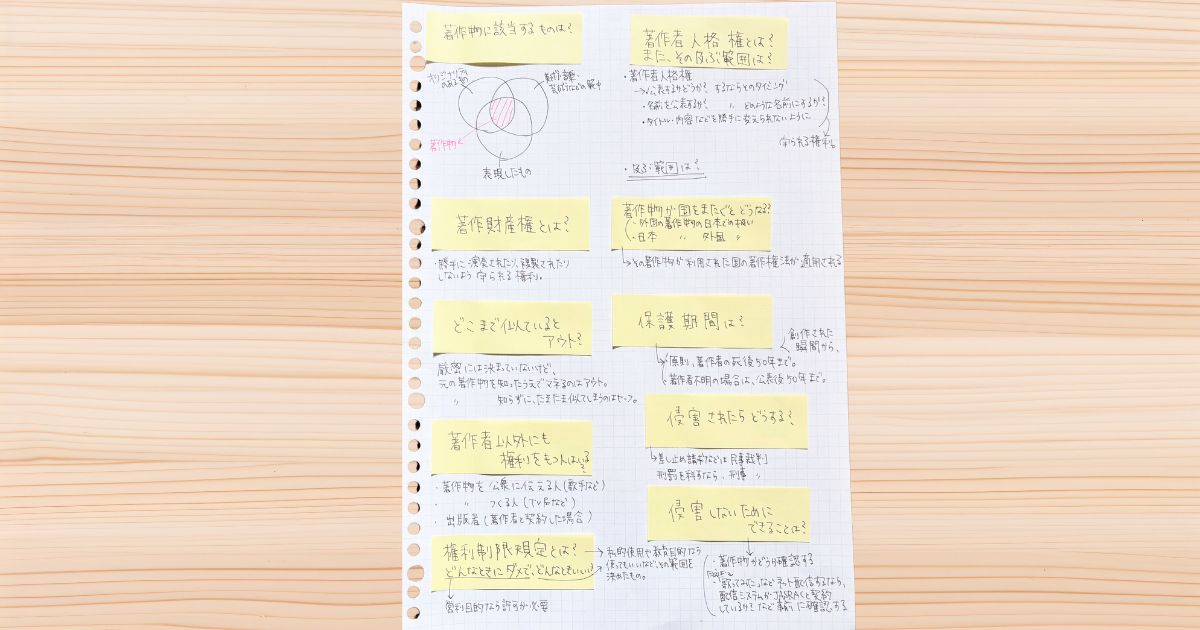 著作物に該当するものは?
オリジナリティ
のある
表現したもの
著作物
著作者人格権とは?
また、その及ぶ範囲は?
・著作者人格権
→・公表するかどうか? するならそのタイミング
・名前を公表するか? 〃 どのような名前にするか?
・タイトル・内容などを勝手に変えられないように
守られる権利。
・及ぶ範囲は?
著作財産権とは?
・勝手に演奏されたり、複製されたり
しないよう守られる権利。
著作物が国をまたぐとどうなる?
・外国の著作物の日本での扱い
・日本 〃 外国 〃
→その著作物が利用された国の著作権法が適用される
どこまで似ていると
アウト?
厳密には決まっていないけど、
元の著作物を知ったうえでマネるのはアウト。
〃 知らずに、たまたま似てしまうのはセーフ。
保護期間は?
創作された
瞬間から、
原則、著作者の死後50年まで。
著作者不明の場合は、公表後50年まで。
著作者以外にも
権利をもつ人はいる?
・著作物を公衆に伝える人(歌手など)
・ 〃 つくる人(TV局など)
・出版者(著作者と契約した場合)
侵害されたらどうする?
→差し止め請求などは民事裁判
刑罰を科すなら、刑事 〃
権利制限規定とは?
どんなときにダメで、どんなときいい?
→私的使用や教育目的なら
使ってもいいなど、その範囲を
決めたもの。
営利目的なら許可が必要
侵害しないために
できることは?
・著作物かどうか確認する
・「歌ってみた」などネット配信するなら、
配信システムがJASRACと契約
しているか?など事前に確認する